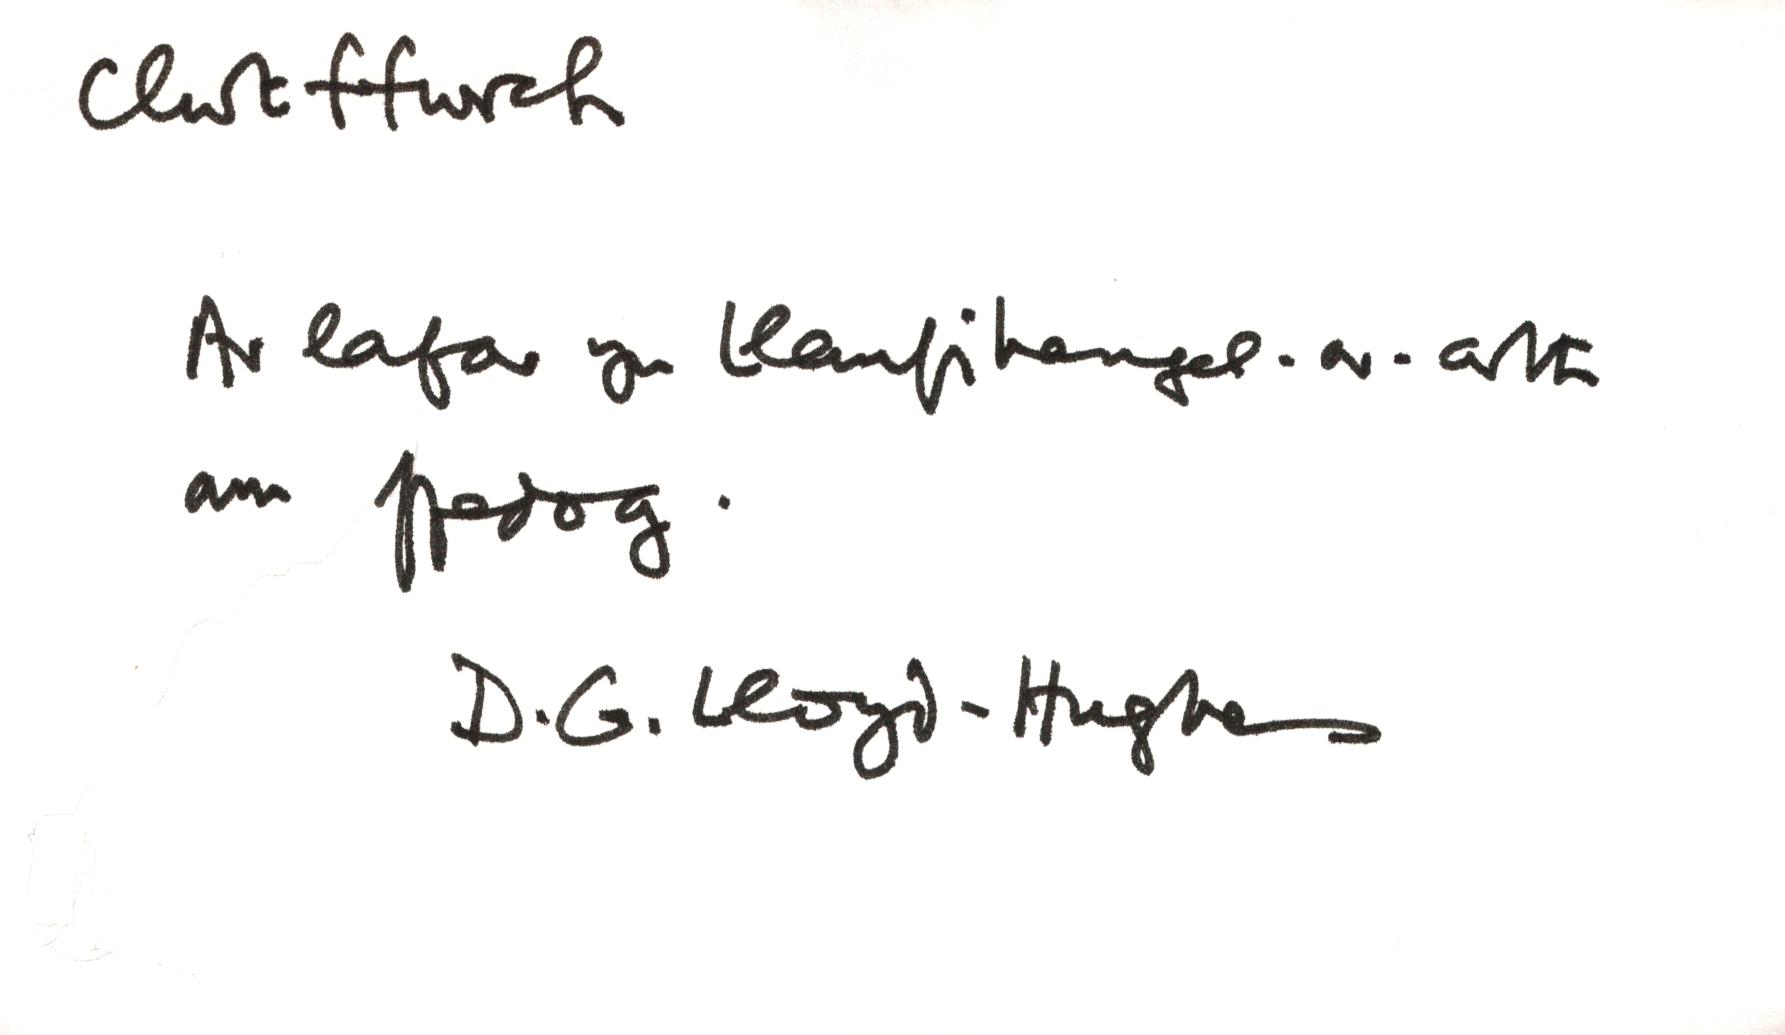 Clwt ffwrch
Ar lafar yn Llanfihangel-ar-arth
am ffedog.
D.G. Lloyd-Hughes